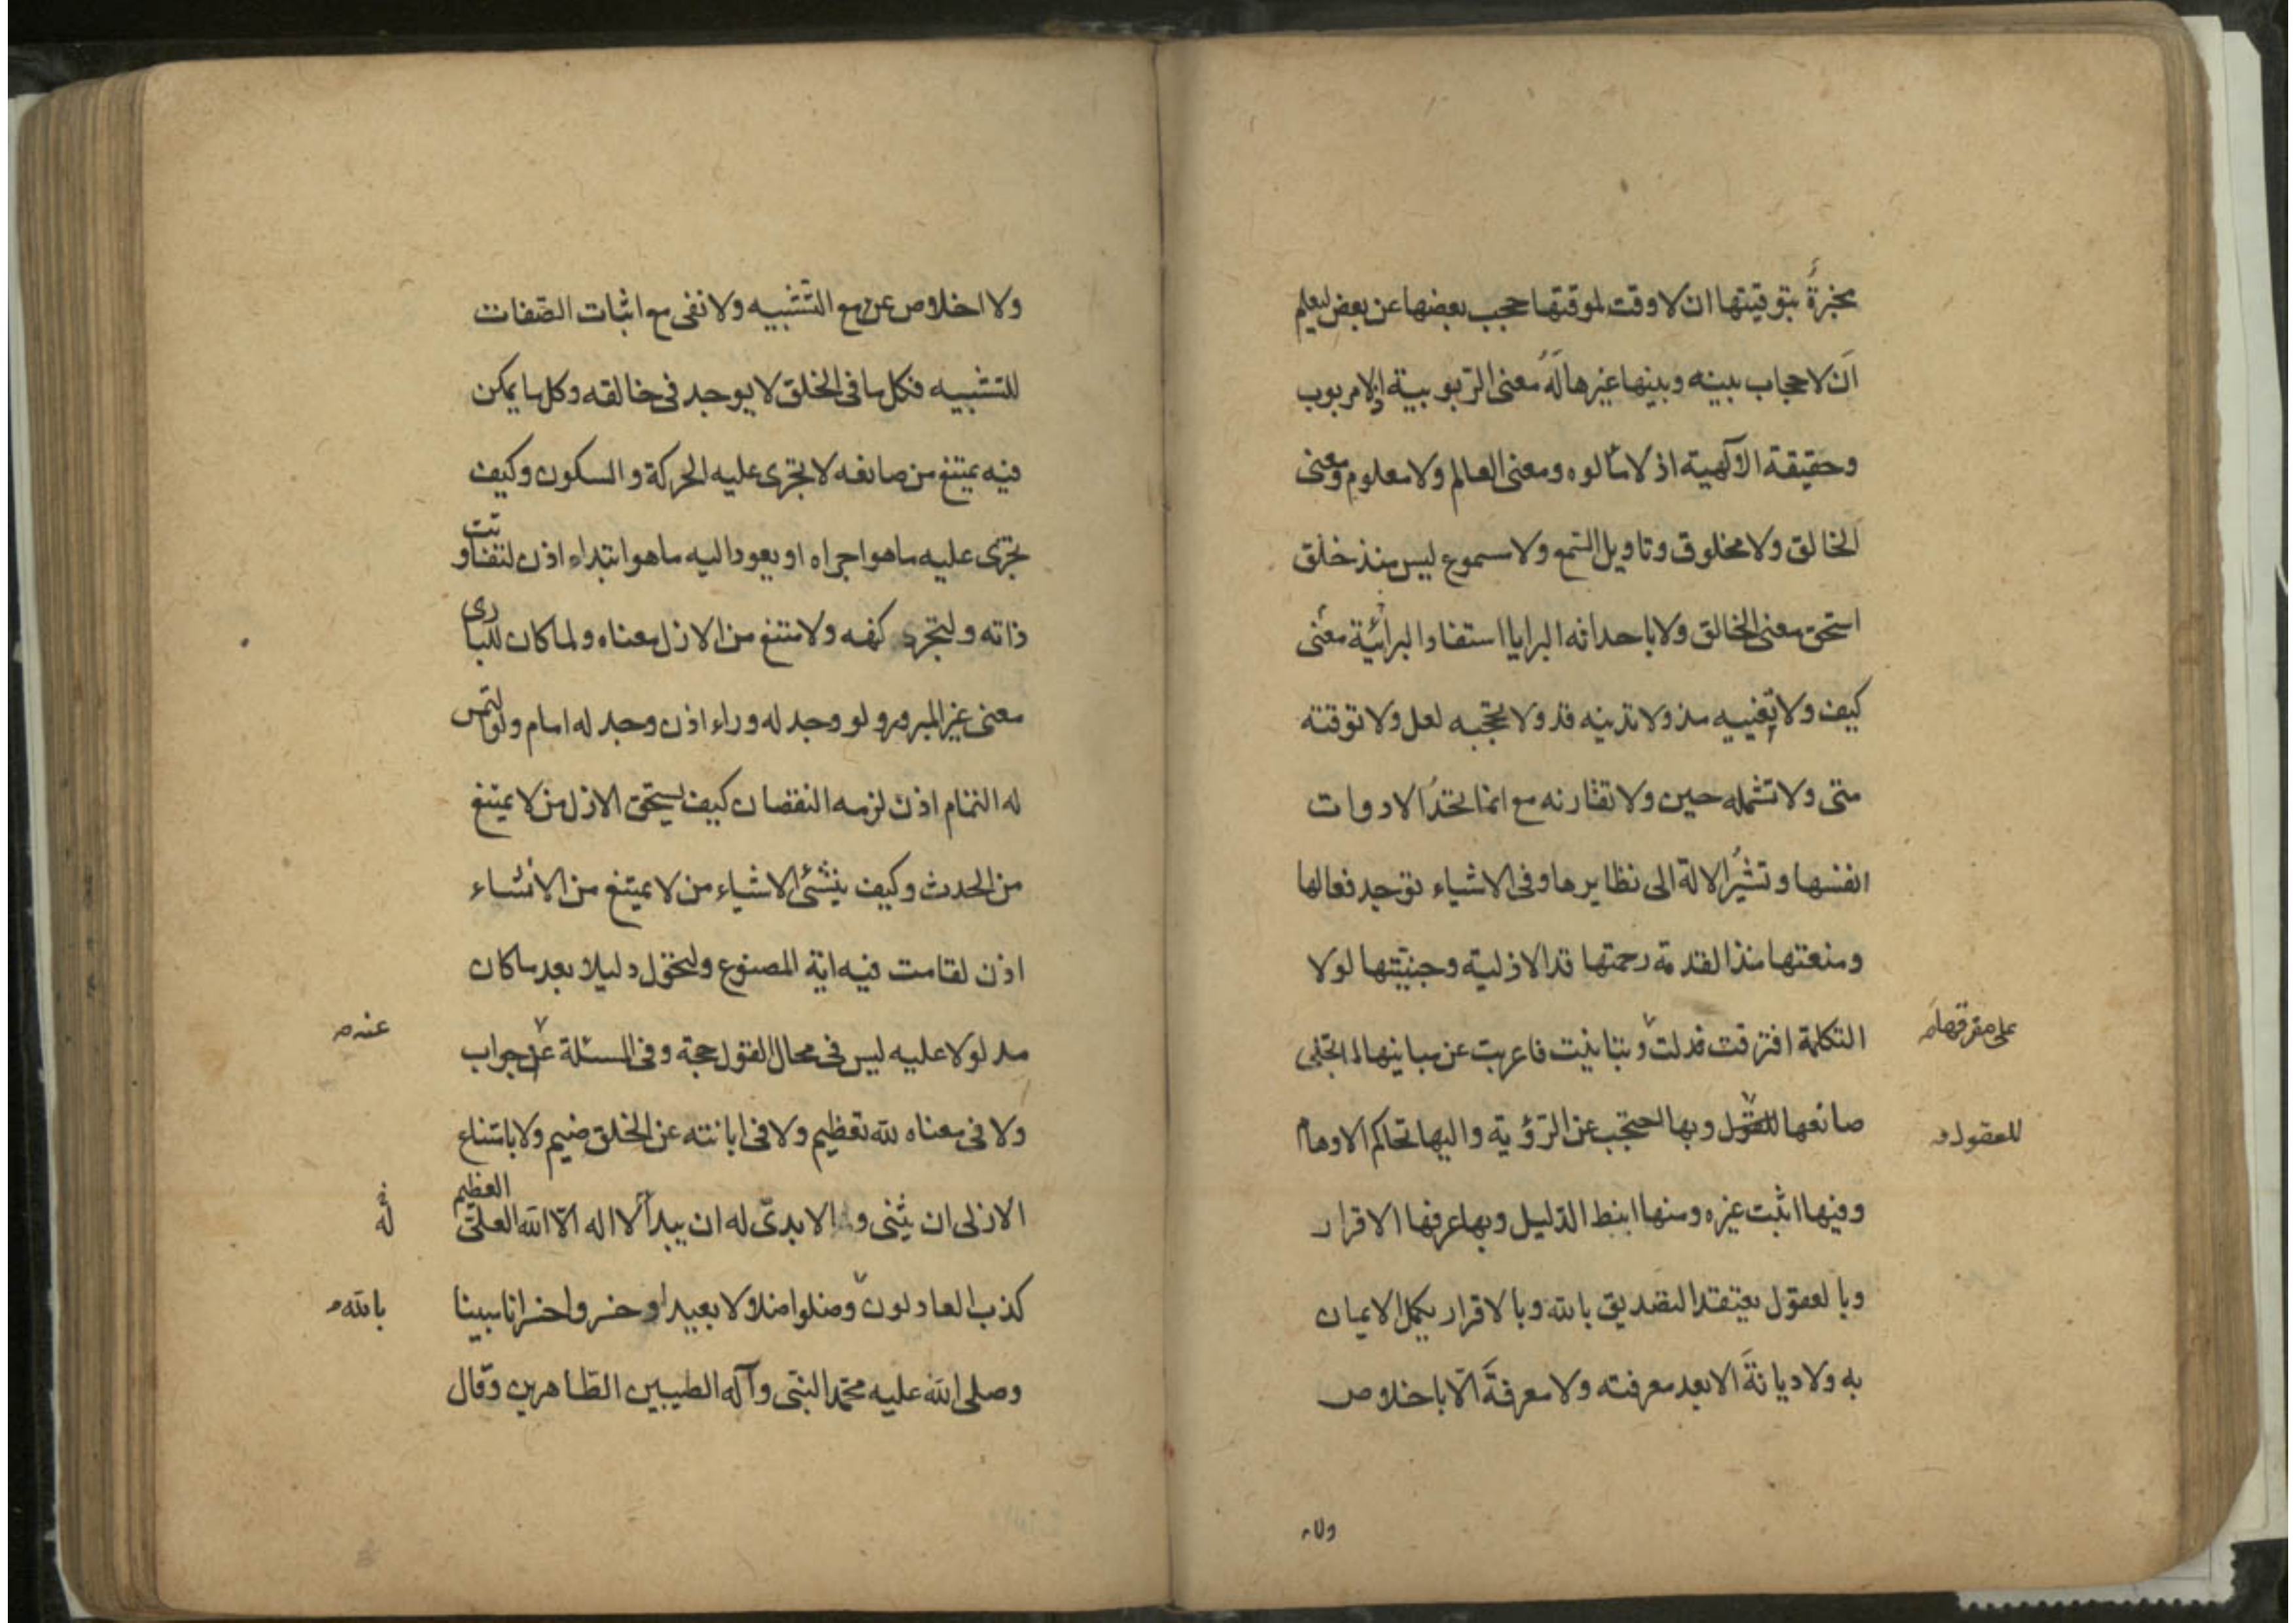 مخبرة بتوقيتها ان لا وقت لموقتها حجب بعضها عن بعض ليعلم
ان لا حجاب بينه وبينها غيرها له معنى الربوبية إلا مربوب
وحقيقة الالهية اذ لا مالوه ومعنى العالم ولا معلوم ومعنى
الخالق ولا مخلوق وتاويل السمع ولا مسموع ليس منذ خلق
استحق معنى الخالق ولا باحداثه البرايا استفاد البرائية معنى
كيف ولا تغنيه مذ ولا تدنيه قد ولا تحجبه لعل ولا توقته
متى ولا تشمله حين ولا تقارنه مع انما تحد الادوات
انفسها وتشير الالة الى نظايرها وفى الاشياء توجد فعالها
ومنعتها منذ القدمة رحمتها قد الازلية وجنبتها لولا
التكلمة افترقت فدلت وتباينت فاعربت عن مباينها لما تجلى
على مفرقها
صانعها للعقول وبها احتجب عن الرؤية واليها تحاكم الاوهام
للعقول
وفيها اثبت غيره ومنها انبط الدليل وبها عرفها الاقرار
وبالعقول يعتقد التصديق بالله وبالاقرار يكمل الايمان
به ولا ديانة الا بعد معرفته ولا معرفة الا باخلاص
ولا
ولا اخلاص مع التشبيه ولا نفى مع اثبات الصفات
للتشبيه فكل ما فى الخلق لا يوجد فى خالقه وكل ما يمكن
فيه يمتنع من صانعه لا تجرى عليه الحركة والسكون وكيف
يجرى عليه ما هو اجراه او يعود اليه ما هو ابتداء اذن لتفاوتت
ذاته ولتجزى كنهه ولامتنع من الازل معناه ولما كان للبارى
معنى غير المبروء ولو وجد له وراء اذن وجد له امام ولو التمس
له التمام اذن لزمه النقصان كيف يستحق الازل من لا يمتنع
من الحدث وكيف ينشئ الاشياء من لا يمتنع من الانشاء
اذن لقامت فيه اية المصنوع ولتحول دليلا بعد ما كان
مدلولا عليه ليس فى محال القول حجة وفى المسئلة عن جواب
عنه
ولا فى معناه لله تعظيم ولا فى ابانته عن الخلق ضيم ولا بامتناع
الازلى ان يثنى و الا بدى له ان يبدأ لا اله الا الله العلى العظيم
له
كذب العادلون وضلوا ضلالا بعيدا وخسروا خسرانا مبينا
بالله
وصلى الله عليه محمد النبى وآله الطيبين الطاهرين وقال